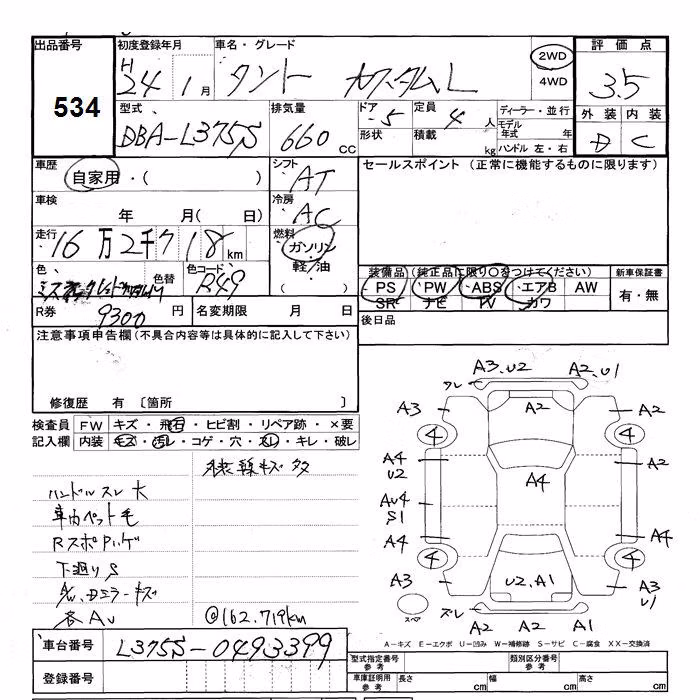 出品番号 534
初度登録年月 H 24 1月
車名・グレード タント カスタムL
2WD
4WD
評価点 3.5
外装 D 内装 C
型式 DBA-L375S
排気量 660 CC
ドア ・5
形状
定員 4 人
積載 kg
ディーラー・並行
モデル年式 年
ハンドル 左・右
車歴 自家用・( )
シフト AT
セールスポイント (正常に機能するものに限ります)
車検 年 月( 日)
冷房 AC
走行 16万2千718km
燃料 ガソリン・軽油・( )
色 色替 色コード R49
装備品(純正品に限り○をつけてください)
PS PW ABS エアB AW
SR ナビ TV カワ
新車保証書 有・無
R券 9300円
名変期限 月 日
後日品
注意事項申告欄(不具合内容等は具体的に記入して下さい)
修復歴 有 〔箇所 〕
検査員記入欄
FW キズ・飛石・ヒビ割・リペア跡・×要
内装 キズ・汚レ・コゲ・穴・スレ・キレ・破レ
外装 線キズ多
ハンドルスレ大
車内ペット毛
RスポPハゲ
下廻りS
ドアミラーキズ
各AU
@162.719km
A3.U2 A2.U1
ズレ
A3 A2 A2
4 4
A4 U2 A2
A4
AU4 S1
A4 A4
4 4
A3 U2.A1 A3 U1
スペア ズレ A2 A2 A1
A-キズ E-エクボ U-凹み W-補修跡 S-サビ C-腐食 XX-交換済
車台番号 L375S-0493399
登録番号
型式指定番号 参考
類別区分番号 参考
車庫証明用 参考 長さ cm 幅 cm 高さ cm